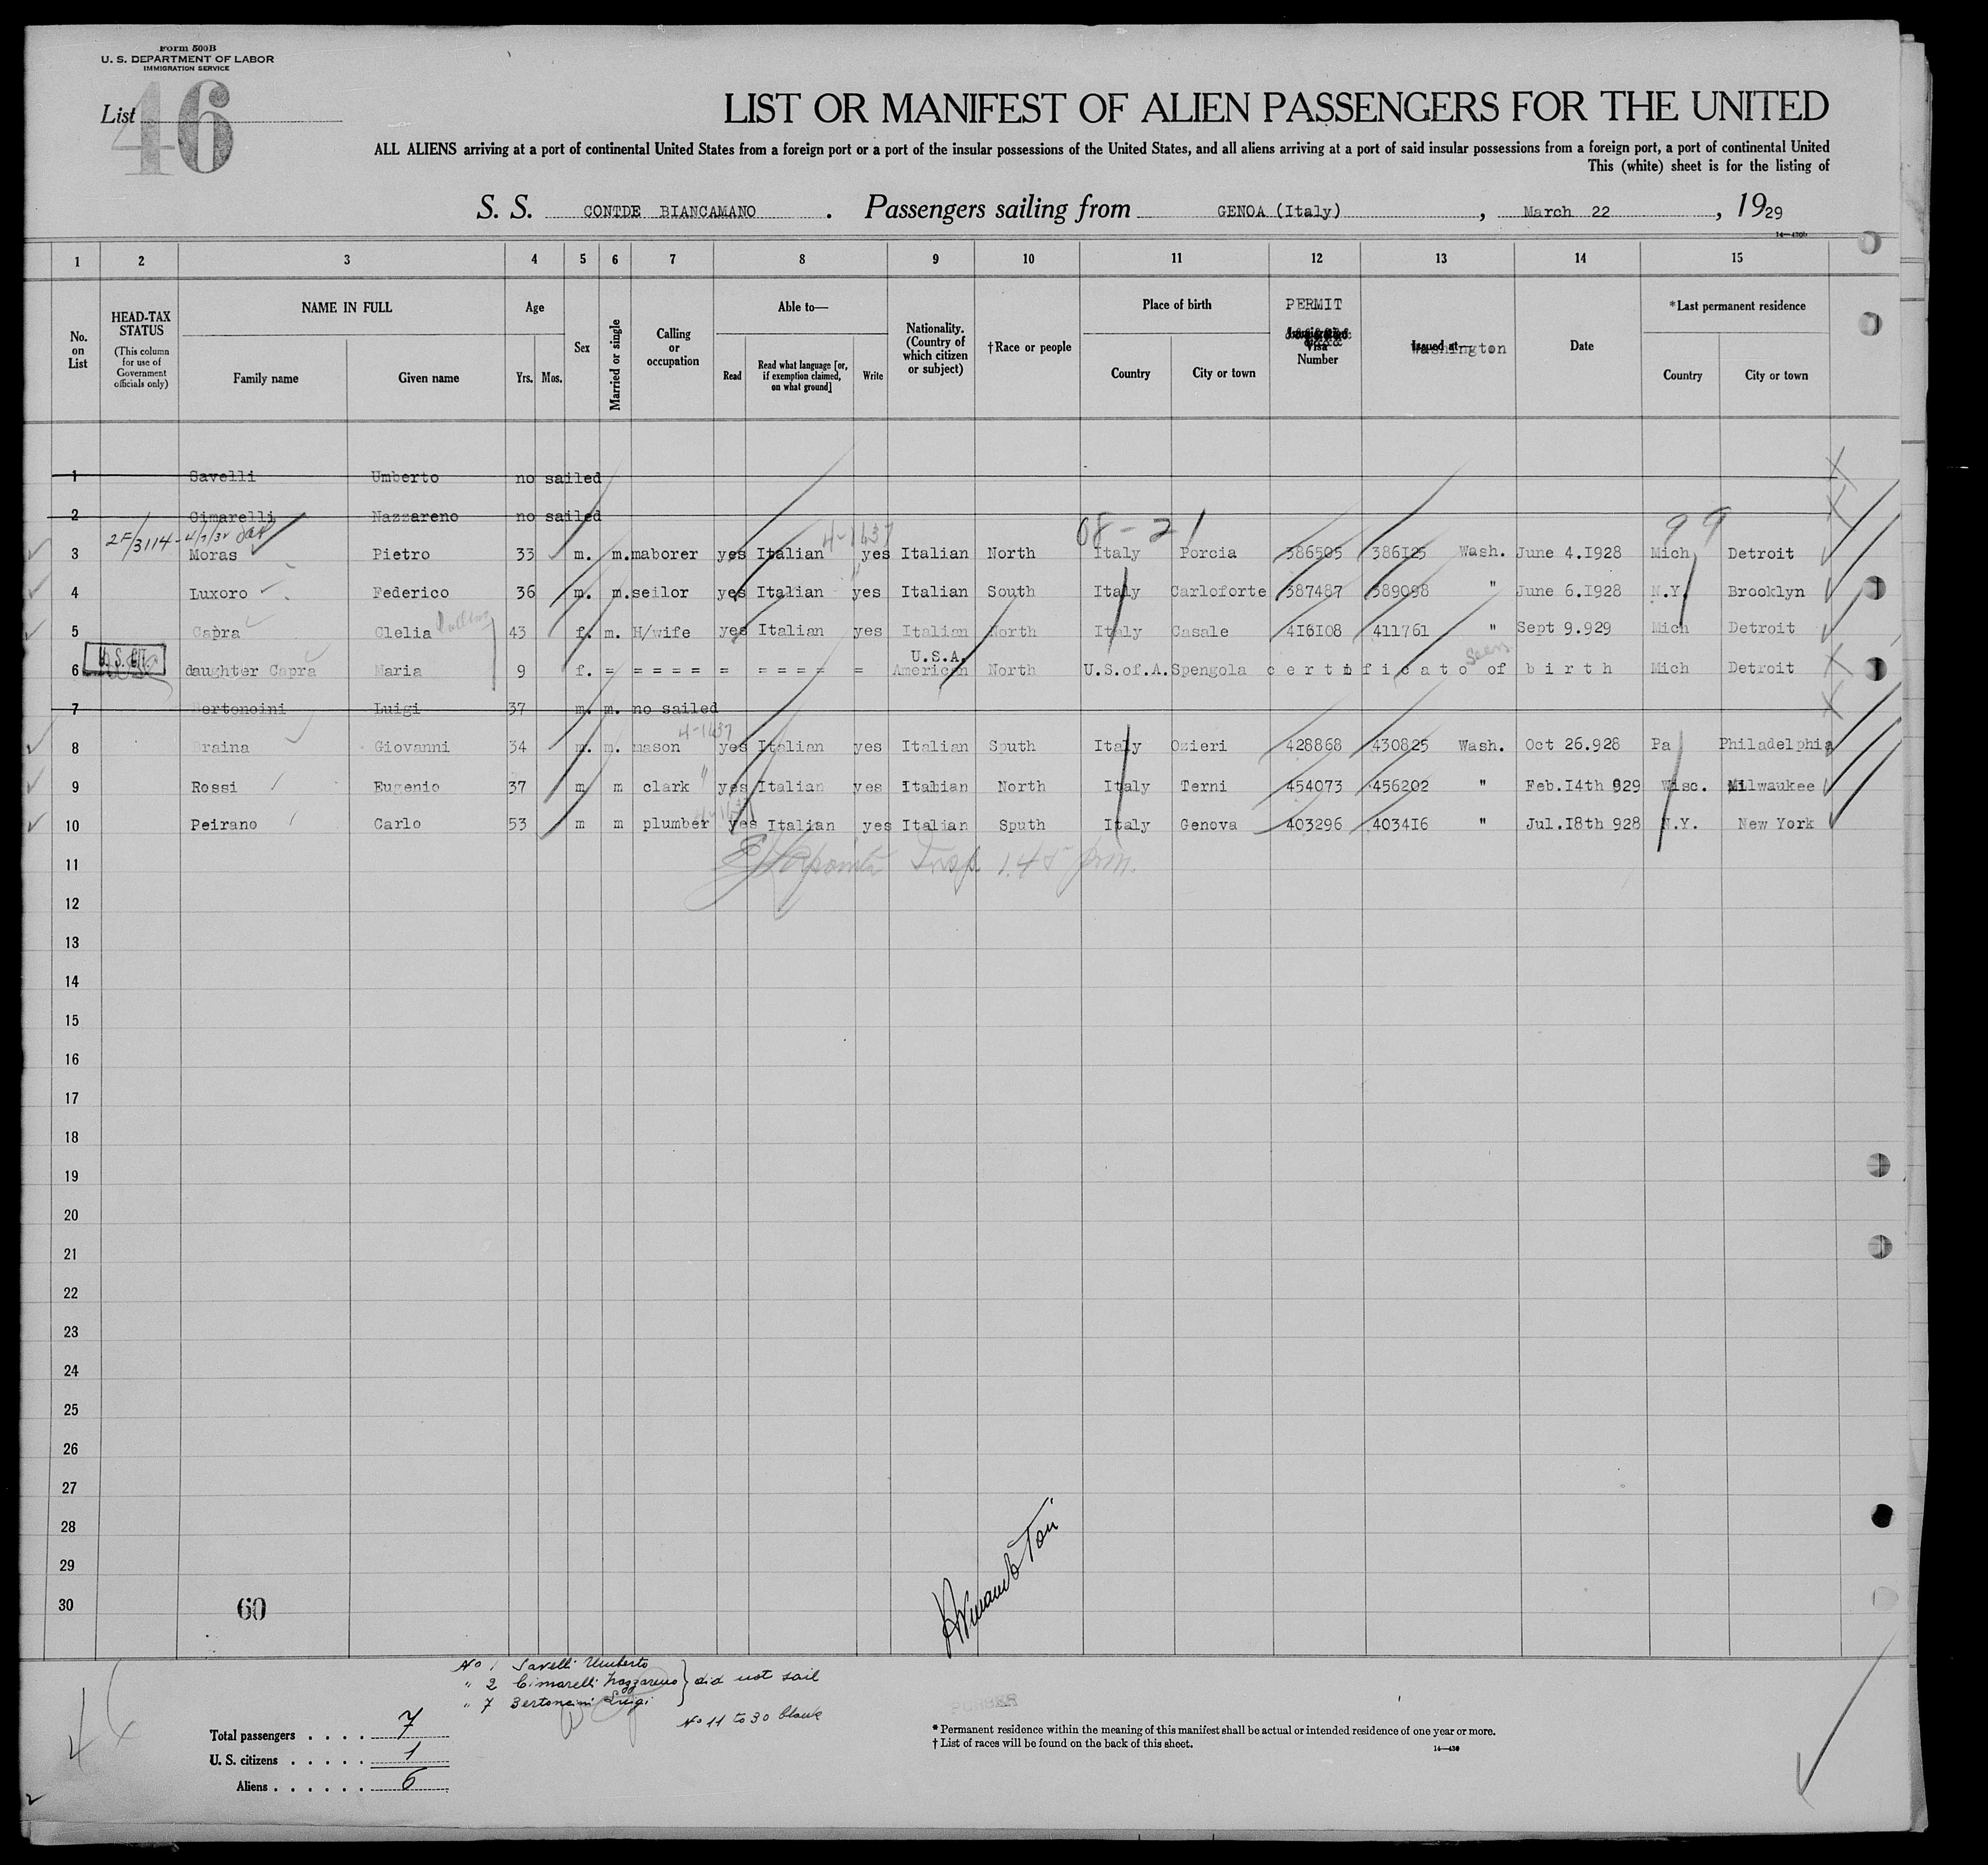 Form 500B
U. S. DEPARTMENT OF LABOR
IMMIGRATION SERVICE
List 46
LIST OR MANIFEST OF ALIEN PASSENGERS FOR THE UNITED
ALL ALIENS arriving at a port of continental United States from a foreign port or a port of the insular possessions of the United States, and all aliens arriving at a port of said insular possessions from a foreign port, a port of continental United
This (white) sheet is for the listing of
S. S. CONTDE BIANCAMANO . Passengers sailing from GENOA (Italy) , March 22 , 1929
1 2 3 4 5 6 7 8 9 10 11 12 13 14 15
No. on List
HEAD-TAX STATUS
(This column for use of Government officials only)
NAME IN FULL
Family name
Given name
Age
Yrs. Mos.
Sex
Married or single
Calling or occupation
Able to—
Read
Read what language [or, if exemption claimed, on what ground]
Write
Nationality. (Country of which citizen or subject)
† Race or people
Place of birth
Country
City or town
PERMIT
Visa
Number
Issued at
Washington
Date
* Last permanent residence
Country
City or town
1 Savelli Umberto no sailed
2 Cimarelli Nazzareno no sailed
2F/3114-4/7/32 4-1437 08-21 99
3 Moras Pietro 33 m. m. maborer yes Italian yes Italian North Italy Porcia 386505 386I25 Wash. June 4.I928 Mich Detroit
4 Luxoro Federico 36 m. m. seilor yes Italian yes Italian South Italy Carloforte 387487 389098 " June 6.I928 N.Y. Brooklyn
5 Capra Clelia 43 f. m. H/wife yes Italian yes Italian North Italy Casale 4I6I08 411761 " Sept 9.929 Mich Detroit
U.S. CIT. U.S.A. seen
6 daughter Capra Maria 9 f. = = = = = = = = = = = = American North U.S.of.A. Spengola certificato of birth Mich Detroit
7 Bertoncini Luigi 37 m. m. no sailed
4-1437
8 Braina Giovanni 34 m. m. mason yes Italian yes Italian Sputh Italy Ozieri 428868 430825 Wash. Oct 26.928 Pa Philadelphia
9 Rossi Eugenio 37 m m clark " yes Italian yes Italian North Italy Terni 454073 456202 " Feb.I4th 929 Wisc. Milwaukee
10 Peirano Carlo 53 m m plumber yes Italian yes Italian Sputh Italy Genova 403296 4034I6 " Jul.I8th 928 N.Y. New York
11 Insp. 1.45 p.m.
12
13
14
15
16
17
18
19
20
21
22
23
24
25
26
27
28
29
30
60
No 1 Savelli Umberto
" 2 Cimarelli Nazzareno } did not sail
" 7 Bertoncini Luigi
No 11 to 30 blank
Total passengers . . . . 7
U. S. citizens . . . . . 1
Aliens . . . . . . 6
* Permanent residence within the meaning of this manifest shall be actual or intended residence of one year or more.
† List of races will be found on the back of this sheet.
14—430